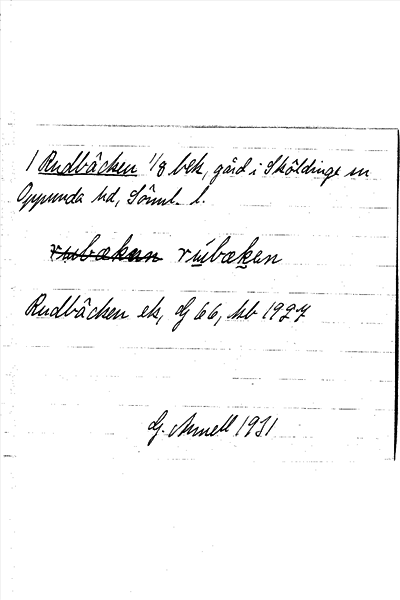 1 Rudbäcken 1/8 bek, gård i Sköldinge sn
Oppunda hd, Söml. l.
ruubækan rúubækan
Rudbäcken ek, Gj 66, Jsb 1927
G. Annell 1931